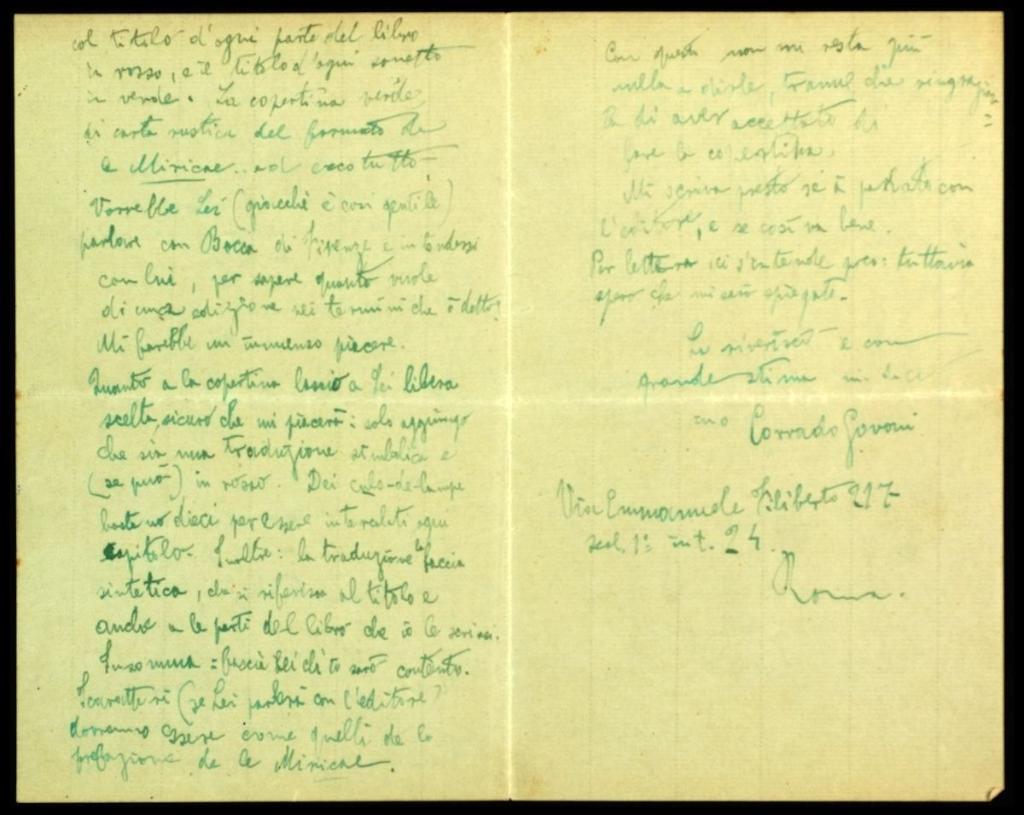 col titolo d'ogni parte del libro
in rosso, e il titolo d'ogni sonetto
in verde. La copertina verde,
di carta rustica del formato de
le Miricae.. ed ecco tutto.
Vorrebbe Lei (giacchè è così gentile)
parlare con Bocca di Firenze e intendersi
con lui, per sapere quanto vuole
di una edizione nei termini che ò detto?
Mi farebbe un immenso piacere.
Quanto a la copertina lascio a Lei libera
scelta, sicuro che mi piacerà: solo aggiungo
che sia una traduzione simbolica e
(se può) in rosso. Dei culs-de-lampe
bastano dieci per essere intercalati ogni
capitolo. Inoltre: la traduzione la faccia
sintetica, che si riferisca al titolo e
anche a le parti del libro che io le scrissi.
Insomma: faccia Lei ch'io sarò contento.
I caratteri (se Lei parlerà con l'editore)
dovranno essere come quelli de la
prefazione de le Miricae.
Con questo non mi resta più
nulla a dirle, tranne che ringraziar=
La di aver accettato di
fare la copertina.
Mi scriva presto se à parlato con
l'editore, e se così va bene.
Per lettera ci s'intende poco: tuttavia
spero che mi sarò spiegato.
La riverisco e con
grande stima mi
Corrado Govoni
Via Emmanuele Filiberto 217
scal. 1ª int. 24.
Roma.